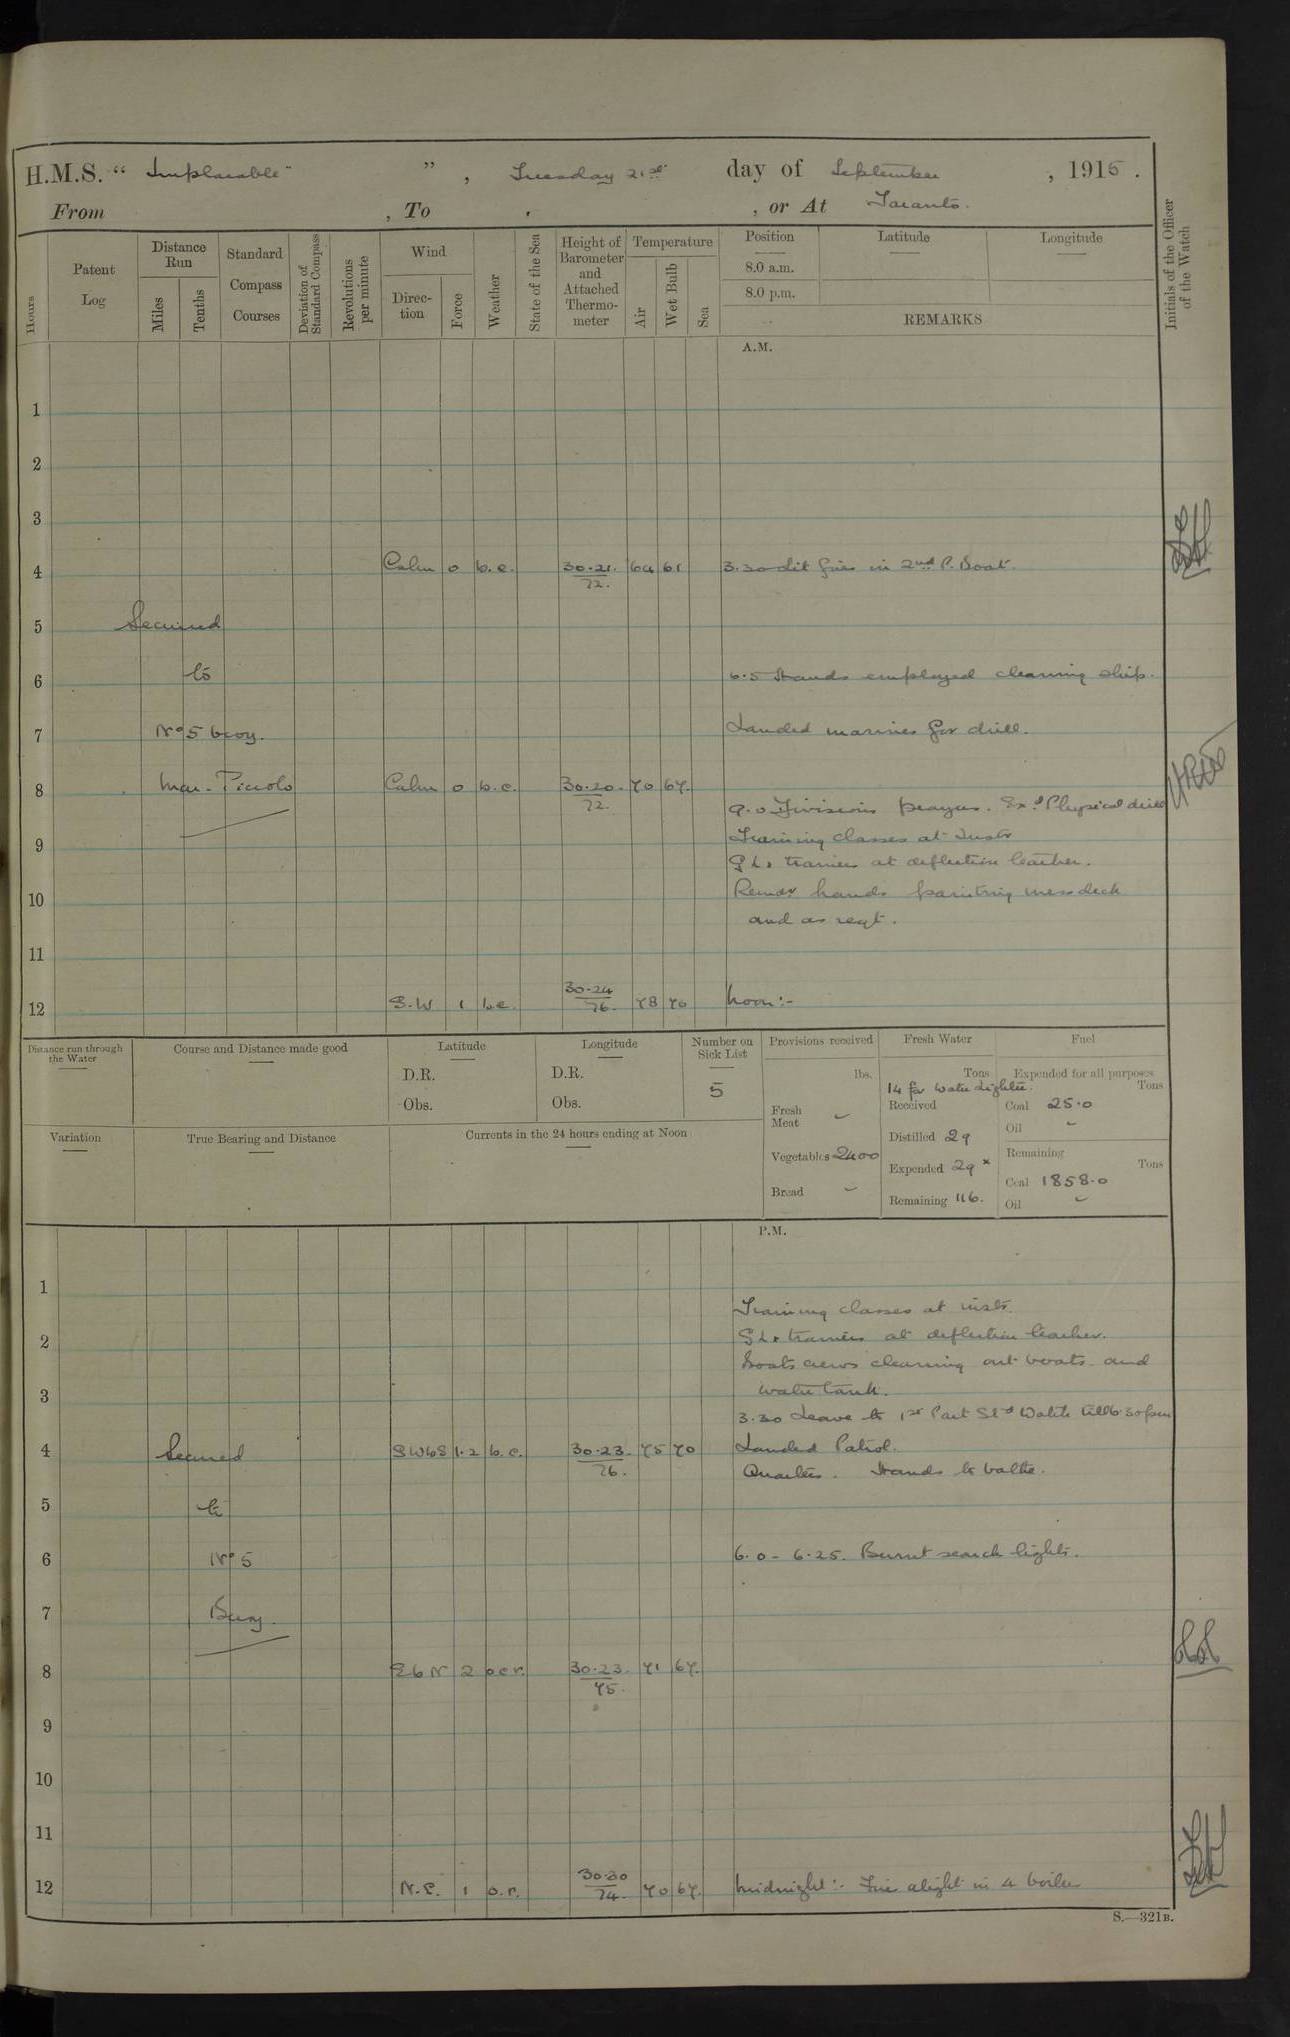 H.M.S. “ Implacable ” , Tuesday 21st day of September , 1915 .
From , To , or At Taranto.
Hours
Patent Log
Distance Run
Miles
Tenths
Standard Compass Courses
Deviation of Standard Compass
Revolutions per minute
Wind
Direc-tion
Force
Weather
State of the Sea
Height of Barometer and Attached Thermo-meter
Temperature
Air
Wet Bulb
Sea
Position
8.0 a.m.
8.0 p.m.
Latitude
Longitude
REMARKS
Initials of the Officer of the Watch
A.M.
1
2
3
4 Calm 0 b.c. 30.21. 72. 64 61 3.30 Lit fires in 2nd P. Boat.
5 Secured
6 to 6.5 Hands employed cleaning ship.
7 No 5 buoy. Landed marines for drill.
8 Mar. Piccolo Calm 0 b.c. 30.20. 72. 70 67.
9.0 Divisions prayers. Exd Physical drill
9 Training classes at Insts
G.L. trainers at deflection teacher.
10 Remdr hands painting messdeck
and as reqt.
11
12 S.W 1 b.c. 30.24 76. 78 70 Noon:-
Distance run through the Water
Course and Distance made good
Latitude
D.R.
Obs.
Longitude
D.R.
Obs.
Number on Sick List
5
Provisions received
lbs.
Fresh Meat -
Vegetables 2400
Bread -
Fresh Water
Tons
14 for Water Lighter.
Received
Distilled 29
Expended 29 x
Remaining 116.
Fuel
Expended for all purposes
Tons
Coal 25.0
Oil -
Remaining
Tons
Coal 1858.0
Oil -
Variation
True Bearing and Distance
Currents in the 24 hours ending at Noon
P.M.
1
Training classes at insts.
2 G.L. trainers at deflection teacher.
Boats crews cleaning out boats and
3 water tank.
3.30 Leave to 1st Part Std Watch till 6.30 pm
4 Secured SWbS 1.2 b.c. 30.23. 76. 75 70 Landed Patrol.
Quarters. Hands to bathe.
5 to
6 No 5 6.0 - 6.25. Burnt search lights.
7 Buoy.
8 EbN 2 o.c.r. 30.23. 75. 71 67.
9
10
11
12 N.E. 1 o.r. 30.20 74. 70 67. Midnight:- Fires alight in 4 boilers
S.—321B.